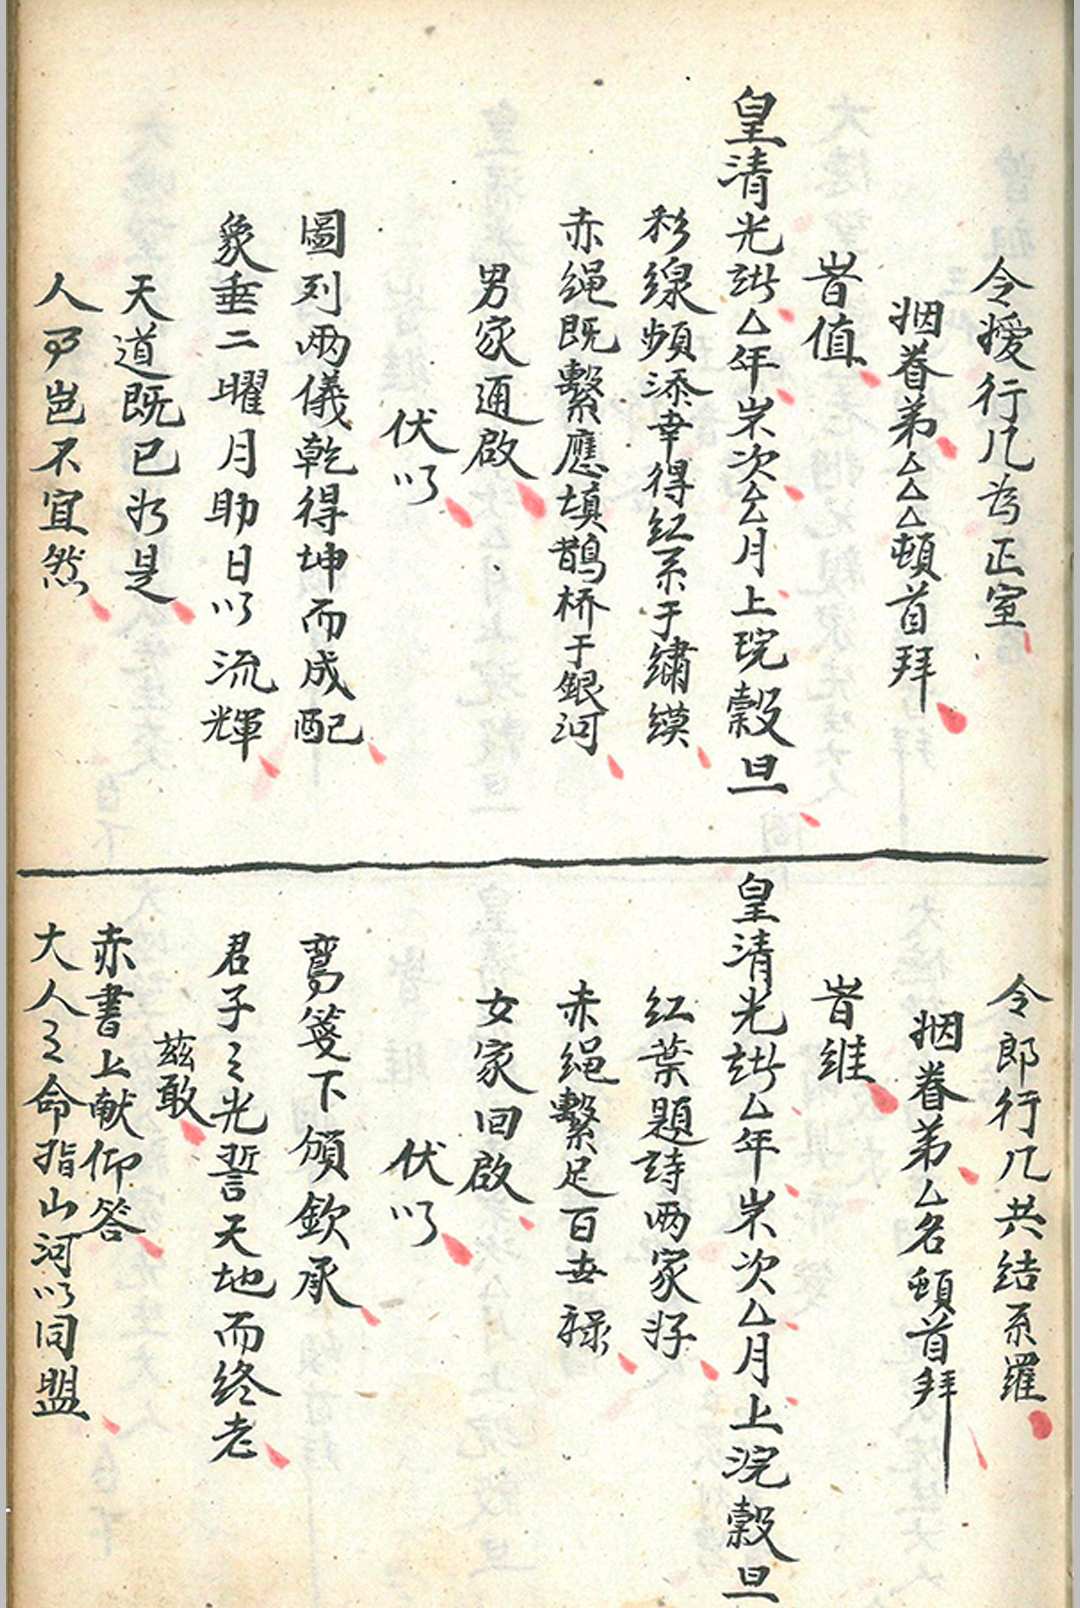 令嬡行几为正室
姻眷弟厶厶厶頓首拜
旹值
皇清光緒厶年岁次厶月上琓穀旦
彩線頻添幸得红系于繡縸
赤绳既繫應填鵲桥于銀河
男家通啟
伏以
圖列兩儀乾得坤而成配
象垂二曜月助日以流輝
天道既已如是
人事岂不宜然
令郎行几共结系羅
姻眷弟厶名頓首拜
旹維
皇清光緒厶年岁次厶月上浣穀旦
红葉題詩两家好
赤绳繫足百世禄
女家回啟
伏以
鸾箋下頒欽承
君子之光誓天地而终老
兹敢
赤書上献仰答
大人之命指山河以同盟